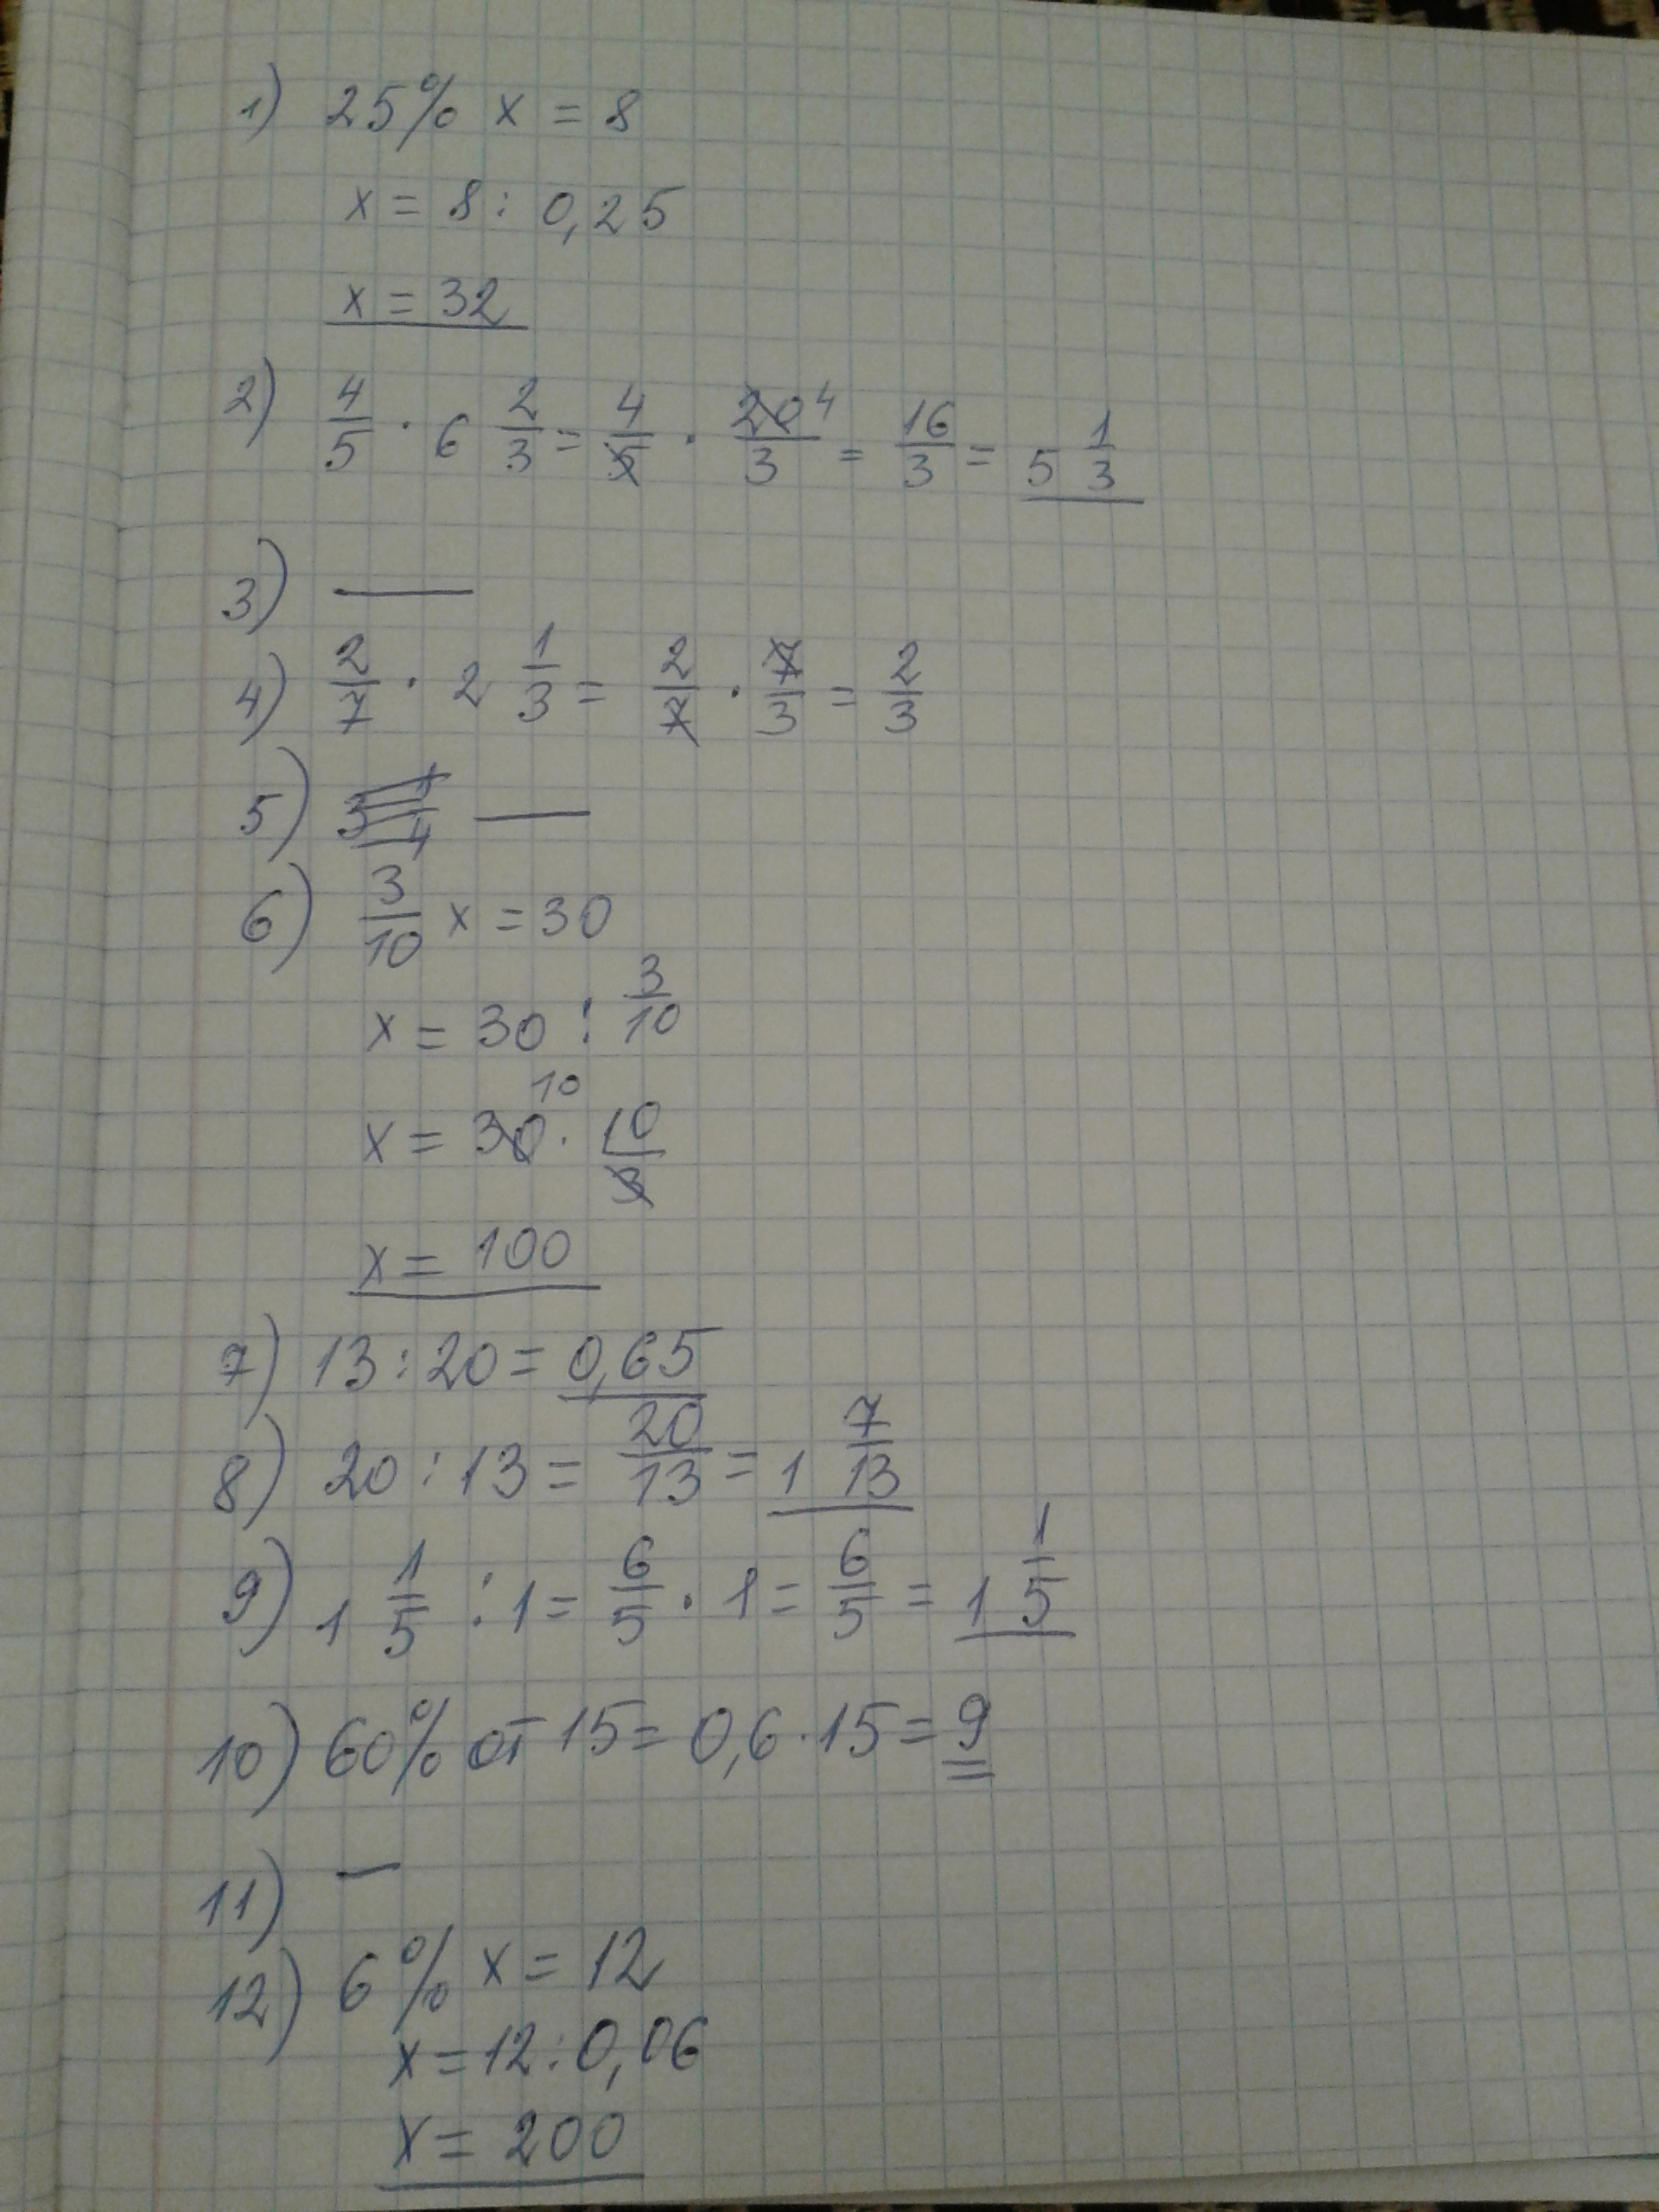 1) 25% x = 8
x = 8 : 0,25
x = 32
2) 4/5 · 6 2/3 = 4/5 · 20/3 4 = 16/3 = 5 1/3
3) —
4) 2/7 · 2 1/3 = 2/7 · 7/3 = 2/3
5) 3 1/4 —
6) 3/10 x = 30
x = 30 : 3/10
10
x = 30 · 10/3
x = 100
7) 13 : 20 = 0,65
8) 20 : 13 = 20/13 = 1 7/13
9) 1 1/5 : 1 = 6/5 · 1 = 6/5 = 1 1/5
10) 60% от 15 = 0,6 · 15 = 9
11) —
12) 6% x = 12
x = 12 : 0,06
x = 200